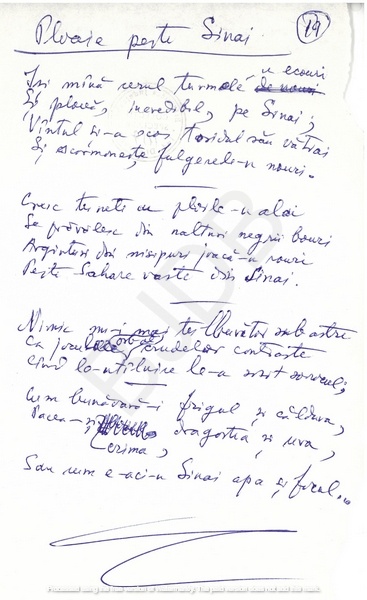 19
Ploaie peste Sinai
Își mînă cerul turmele, în ecouri
Și plouă, incredibil, pe Sinai;
Vîntul și-a scos toridul său vătrai
Și scormonește fulgerele-n nouri.
Cresc tunete cu ploile-n alai
Se prăvălesc din nalturi negrii bouri
Arginturi din nisipuri joacă-n rouri
Peste Sahare vaste din Sinai.
Nimic nu-i mai tulburător sub astre
Ca jocul orb al crudelor contraste
Cînd la-ntîlnire le-a sortit sorocul;
Cum bunăoară-i frigul și căldura,
Pacea-și crima, dragostea și ura,
Sau cum e-aci-n Sinai apa și focul...
BJDB